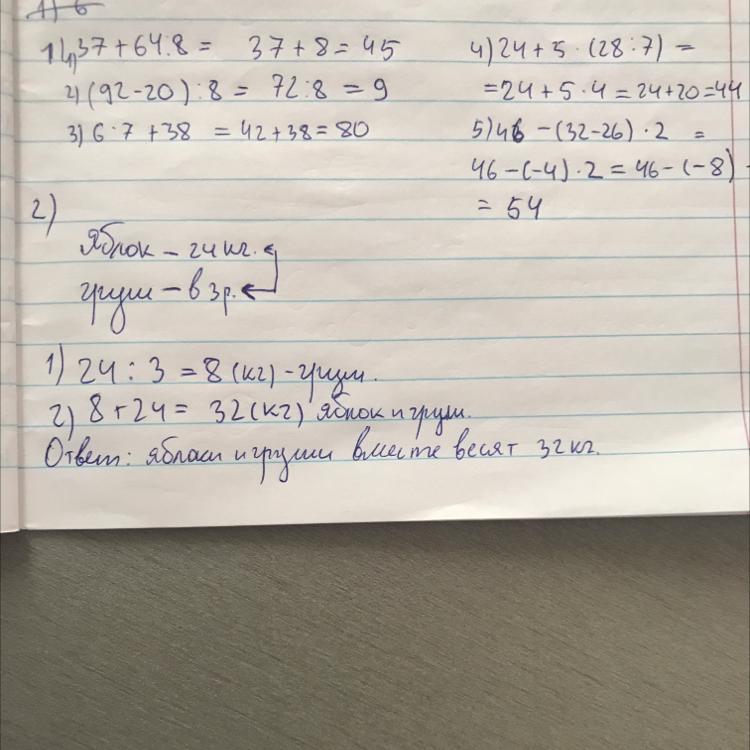 1) 1) 37 + 64 : 8 = 37 + 8 = 45
2) (92 - 20) : 8 = 72 : 8 = 9
3) 6 · 7 + 38 = 42 + 38 = 80
4) 24 + 5 · (28 : 7) =
= 24 + 5 · 4 = 24 + 20 = 44
5) 46 - (32 - 26) · 2 =
46 - (-4) · 2 = 46 - (-8)
= 54
2)
Яблок - 24 кг.
груш - в 3р.
1) 24 : 3 = 8 (кг) - груш.
2) 8 + 24 = 32 (кг) яблок и груш.
Ответ: яблоки и груши вместе весят 32 кг.